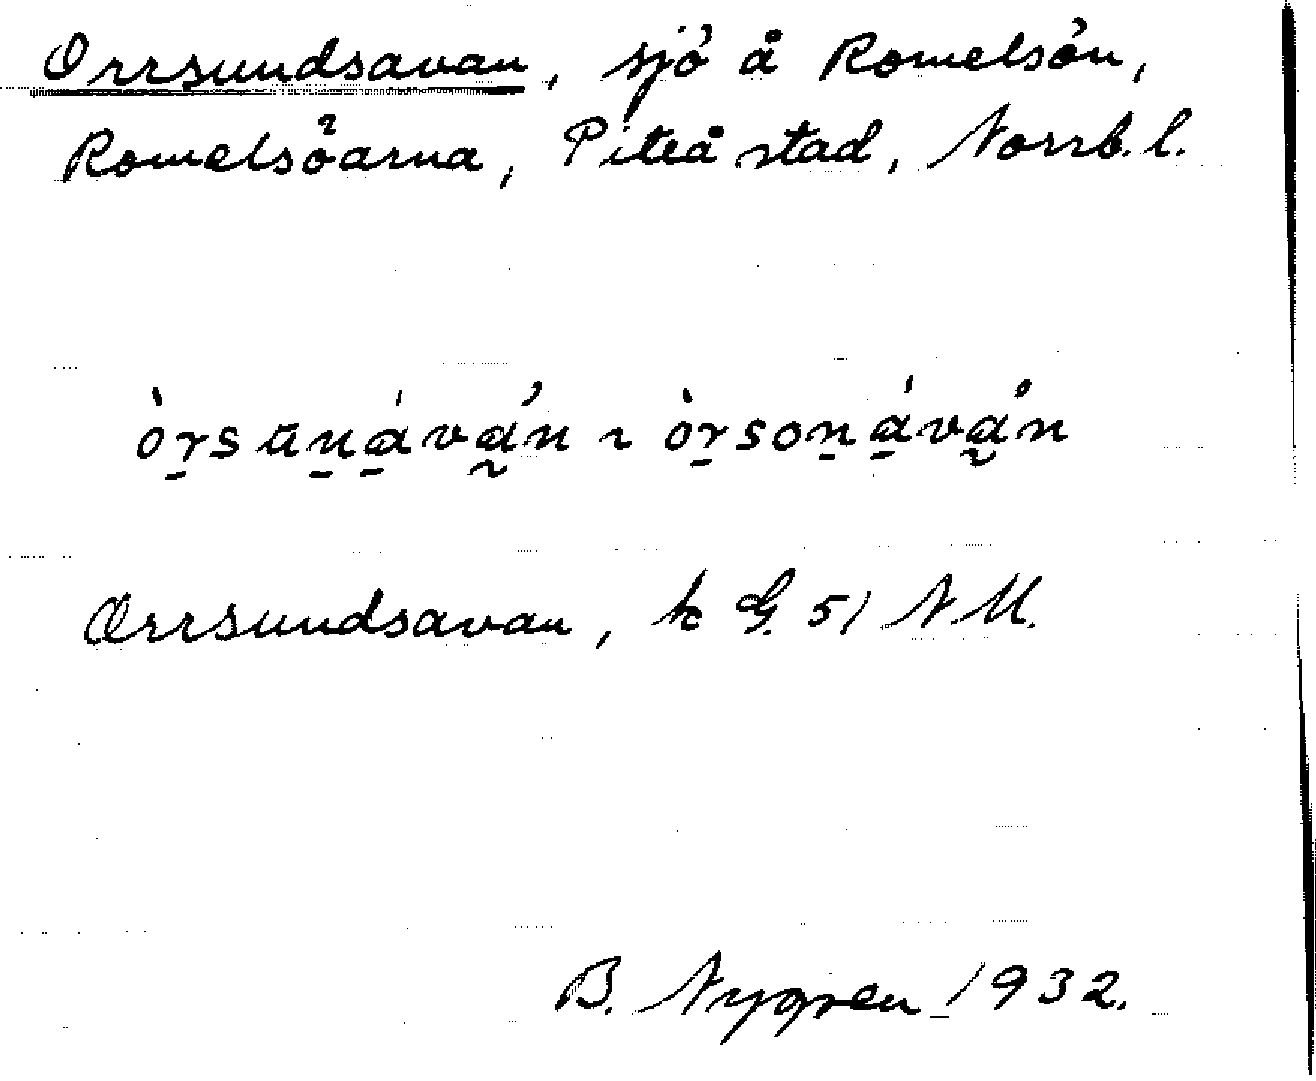 Orrsundsavan, sjö å Romelsön,
Romelsöarna, Piteå stad, Norrb. l.
òr̠sʉn̠á̠va̰̓n ~ òr̠son̠á̠va̰̓n
Orrsundsavan, k G. 51 N. M.
B. Nygren 1932.